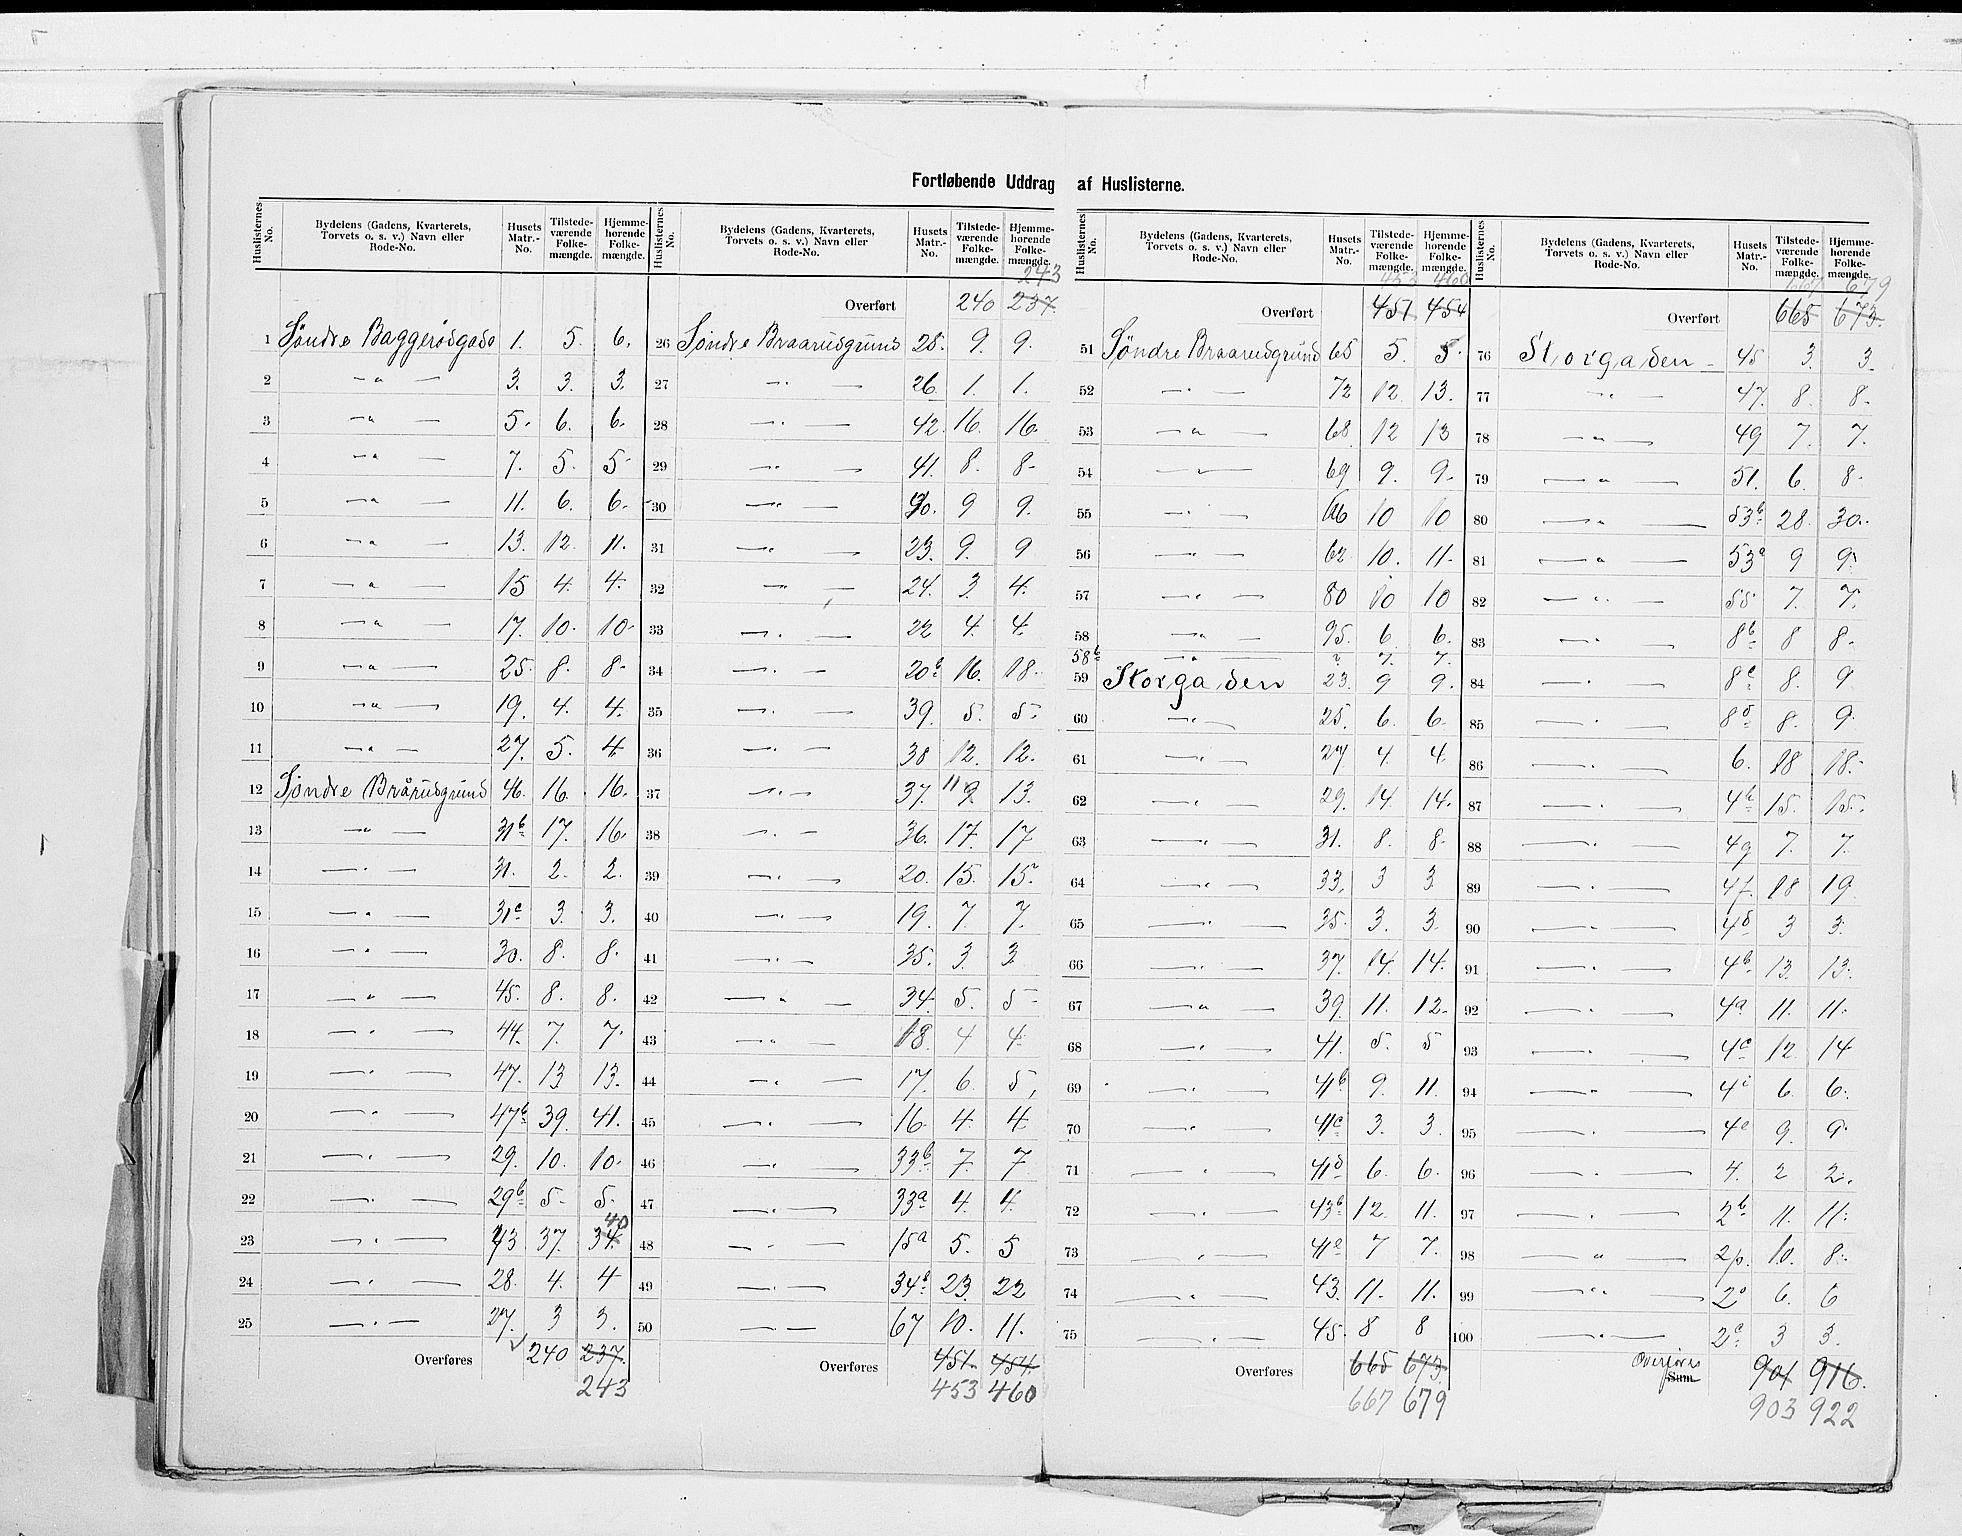 Fortløbende Uddrag af Huslisterne.
Huslisternes No. Bydelens (Gadens, Kvarterets, Torvets o. s. v.) Navn eller Rode-No. Husets Matr.-No. Tilstede-værende Folke-mængde. Hjemme-hørende Folke-mængde.
1 Søndre Baggerødgade 1. 5. 6.
2 —„— 3. 3. 3.
3 —„— 5. 6. 6.
4 —„— 7. 5. 5
5 —„— 11. 6. 6.
6 —„— 13. 12. 11.
7 —„— 15 4. 4.
8 —„— 17. 10. 10.
9 —„— 25. 8. 8.
10 —„— 19. 4. 4.
11 —„— 27. 5. 4
12 Søndre Brårudgrund 46. 16. 16.
13 —„— 31b 17. 16.
14 —„— 31. 2. 2.
15 —„— 31c 3. 3.
16 —„— 30. 8. 8.
17 —„— 45. 8. 8.
18 —„— 44. 7. 7.
19 —„— 47. 13 13.
20 —„— 47b 39. 41.
21 —„— 29. 10. 10.
22 —„— 29b 5. 5.
23 —„— 43 37. 34. 40
24 —„— 28. 4. 4
25 —„— 27. 3 3.
Overføres 240 237.
243
Huslisternes No. Bydelens (Gadens, Kvarterets, Torvets o. s. v.) Navn eller Rode-No. Husets Matr.-No. Tilstede-værende Folke-mængde. Hjemme-hørende Folke-mængde.
243
Overført 240 237.
26 Søndre Braarudgrund 25. 9. 9.
27 —„— 26. 1. 1.
28 —„— 42. 16. 16.
29 —„— 41. 8. 8.
30 —„— 40. 9 9.
31 —„— 23. 9. 9
32 —„— 24. 3. 4.
33 —„— 22 4. 4.
34 —„— 20b 16. 18.
35 —„— 39. 5. 5.
36 —„— 38 12. 12.
37 —„— 37. 11 9. 13.
38 —„— 36. 17. 17
39 —„— 20. 15. 15.
40 —„— 19. 7. 7.
41 —„— 35. 3. 3
42 —„— 34. 5. 5
43 —„— 18. 4 4.
44 —„— 17. 6. 5,
45 —„— 16. 4. 4
46 —„— 33b 7. 7
47 —„— 33a 4. 4.
48 —„— 15a 5. 5
49 —„— 34b 23. 22
50 —„— 67 10. 11.
Overføres 451. 454.
453 460
Huslisternes No. Bydelens (Gadens, Kvarterets, Torvets o. s. v.) Navn eller Rode-No. Husets Matr.-No. Tilstede-værende Folke-mængde. Hjemme-hørende Folke-mængde.
453 460
Overført 451 454
51 Søndre Braarudgrund 65 5. 5.
52 —„— 72 12. 13.
53 —„— 68. 12 13
54 —„— 69 9. 9.
55 —„— 66 10 10
56 —„— 62 10. 11.
57 —„— 80 10 10
58 —„— 95. 6 6.
58b —„— ? 7. 7.
59 Storgaden 23. 9 9.
60 —„— 25. 6. 6.
61 —„— 27 4. 4.
62 —„— 29. 14. 14.
63 —„— 31. 8. 8.
64 —„— 33, 3 3
65 —„— 35. 3. 3.
66 —„— 37. 14. 14.
67 —„— 39. 11. 12.
68 —„— 41. 5. 5
69 —„— 41b 9. 11.
70 —„— 41c 3. 3.
71 —„— 41d 6. 6.
72 —„— 43b 12. 11.
73 —„— 41e 7 7.
74 —„— 43. 11. 11.
75 —„— 45. 8 8
Overføres 665 673.
667 679
Huslisternes No. Bydelens (Gadens, Kvarterets, Torvets o. s. v.) Navn eller Rode-No. Husets Matr.-No. Tilstede-værende Folke-mængde. Hjemme-hørende Folke-mængde.
667 679
Overført 665 673.
76 Storgaden 45 3. 3.
77 —„— 47. 8. 8.
78 —„— 49 7. 7.
79 —„— 51. 6. 8.
80 —„— 53b 28. 30.
81 —„— 53a 9 9.
82 —„— 55 7. 7.
83 —„— 8b 8 8.
84 —„— 8c 8. 9
85 —„— 8d 8. 9.
86 —„— 6. 18 18.
87 —„— 4h 15. 15.
88 —„— 4g 7. 7.
89 —„— 4f. 18 19
90 —„— 4d 3 3.
91 —„— 4b 13. 13.
92 —„— 4a 11. 11.
93 —„— 4c 12. 14
94 —„— 4i 6. 6.
95 —„— 4e 9. 9.
96 —„— 4. 2 2.
97 —„— 2b 11. 11.
98 —„— 2p. 10. 8.
99 —„— 2o 6. 6
100 —„— 2c 3 3.
Overføres Sum 901 916.
903 922